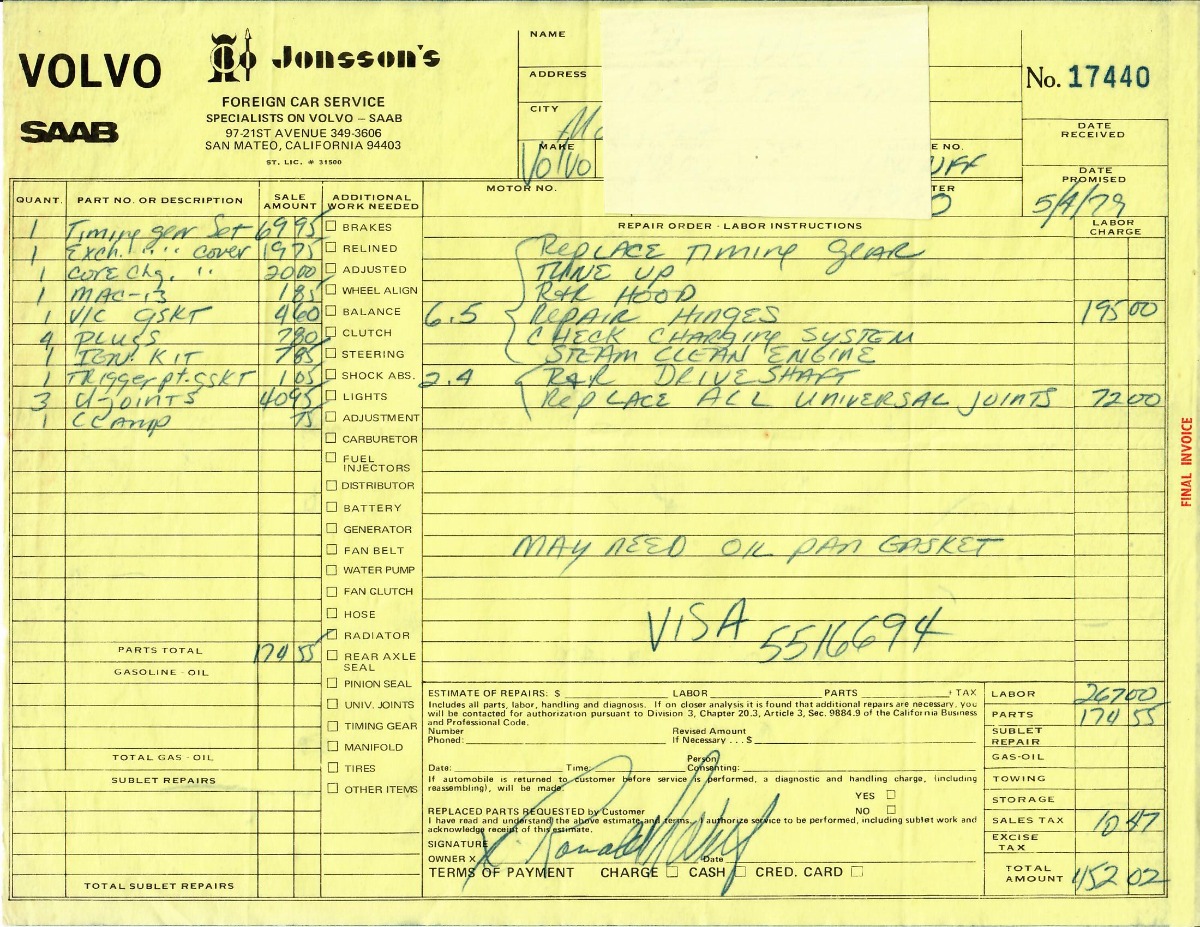 VOLVO
SAAB
Jonsson's
FOREIGN CAR SERVICE
SPECIALISTS ON VOLVO – SAAB
97-21ST AVENUE 349-3606
SAN MATEO, CALIFORNIA 94403
ST. LIC. # 31500
NAME
ADDRESS
CITY
MAKE
Volvo
MOTOR NO.
E NO.
TER
No. 17440
DATE RECEIVED
DATE PROMISED
5/4/79
QUANT. PART NO. OR DESCRIPTION SALE AMOUNT
1 Timing gear Set 69 95
1 Exch. " " cover 19 75
1 Core Chg. " 20 00
1 MAC-13 1 85
1 V/C GSKT 4 60
4 PLUGS 7 80
1 IGN. KIT 7 85
1 Trigger pt. gskt 1 05
3 U-JOINTS 40 95
1 CLAMP 75
PARTS TOTAL 174 55
GASOLINE - OIL
TOTAL GAS - OIL
SUBLET REPAIRS
TOTAL SUBLET REPAIRS
ADDITIONAL WORK NEEDED
BRAKES
RELINED
ADJUSTED
WHEEL ALIGN
BALANCE
CLUTCH
STEERING
SHOCK ABS.
LIGHTS
ADJUSTMENT
CARBURETOR
FUEL INJECTORS
DISTRIBUTOR
BATTERY
GENERATOR
FAN BELT
WATER PUMP
FAN CLUTCH
HOSE
RADIATOR
REAR AXLE SEAL
PINION SEAL
UNIV. JOINTS
TIMING GEAR
MANIFOLD
TIRES
OTHER ITEMS
REPAIR ORDER - LABOR INSTRUCTIONS
LABOR CHARGE
REPLACE TIMING GEAR
TUNE UP
R&R HOOD
6.5 REPAIR HINGES 195 00
CHECK CHARGING SYSTEM
STEAM CLEAN ENGINE
2.4 R&R DRIVESHAFT
REPLACE ALL UNIVERSAL JOINTS 72 00
MAY NEED OIL PAN GASKET
VISA 5516694
FINAL INVOICE
ESTIMATE OF REPAIRS: $ LABOR PARTS + TAX
Includes all parts, labor, handling and diagnosis. If on closer analysis it is found that additional repairs are necessary, you
will be contacted for authorization pursuant to Division 3, Chapter 20.3, Article 3, Sec. 9884.9 of the California Business
and Professional Code.
Number Phoned: Revised Amount If Necessary . . . $
Date: Time: Person Consenting:
If automobile is returned to customer before service is performed, a diagnostic and handling charge, (including
reassembling), will be made.
YES
REPLACED PARTS REQUESTED by Customer NO
I have read and understand the above estimate and terms. I authorize service to be performed, including sublet work and
acknowledge receipt of this estimate.
SIGNATURE
OWNER X Date
TERMS OF PAYMENT CHARGE CASH CRED. CARD
LABOR 267 00
PARTS 174 55
SUBLET REPAIR
GAS-OIL
TOWING
STORAGE
SALES TAX 10 47
EXCISE TAX
TOTAL AMOUNT 452 02